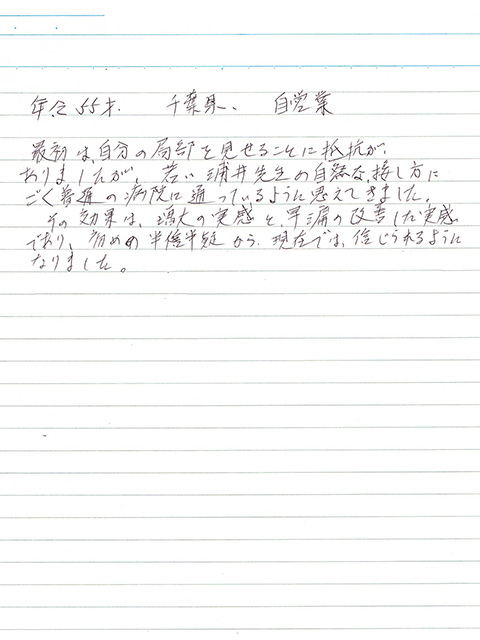 年令55才. 千葉県、 自営業
最初は、自分の局部を見せることに抵抗が、
ありましたが、若い浦井先生の自然な、接し方に
ごく普通の病院に通っているように思えてきました。
その効果は、増大の実感と、早漏の改善した実感
であり、初めの半信半疑から、現在では、信じられるように
なりました。